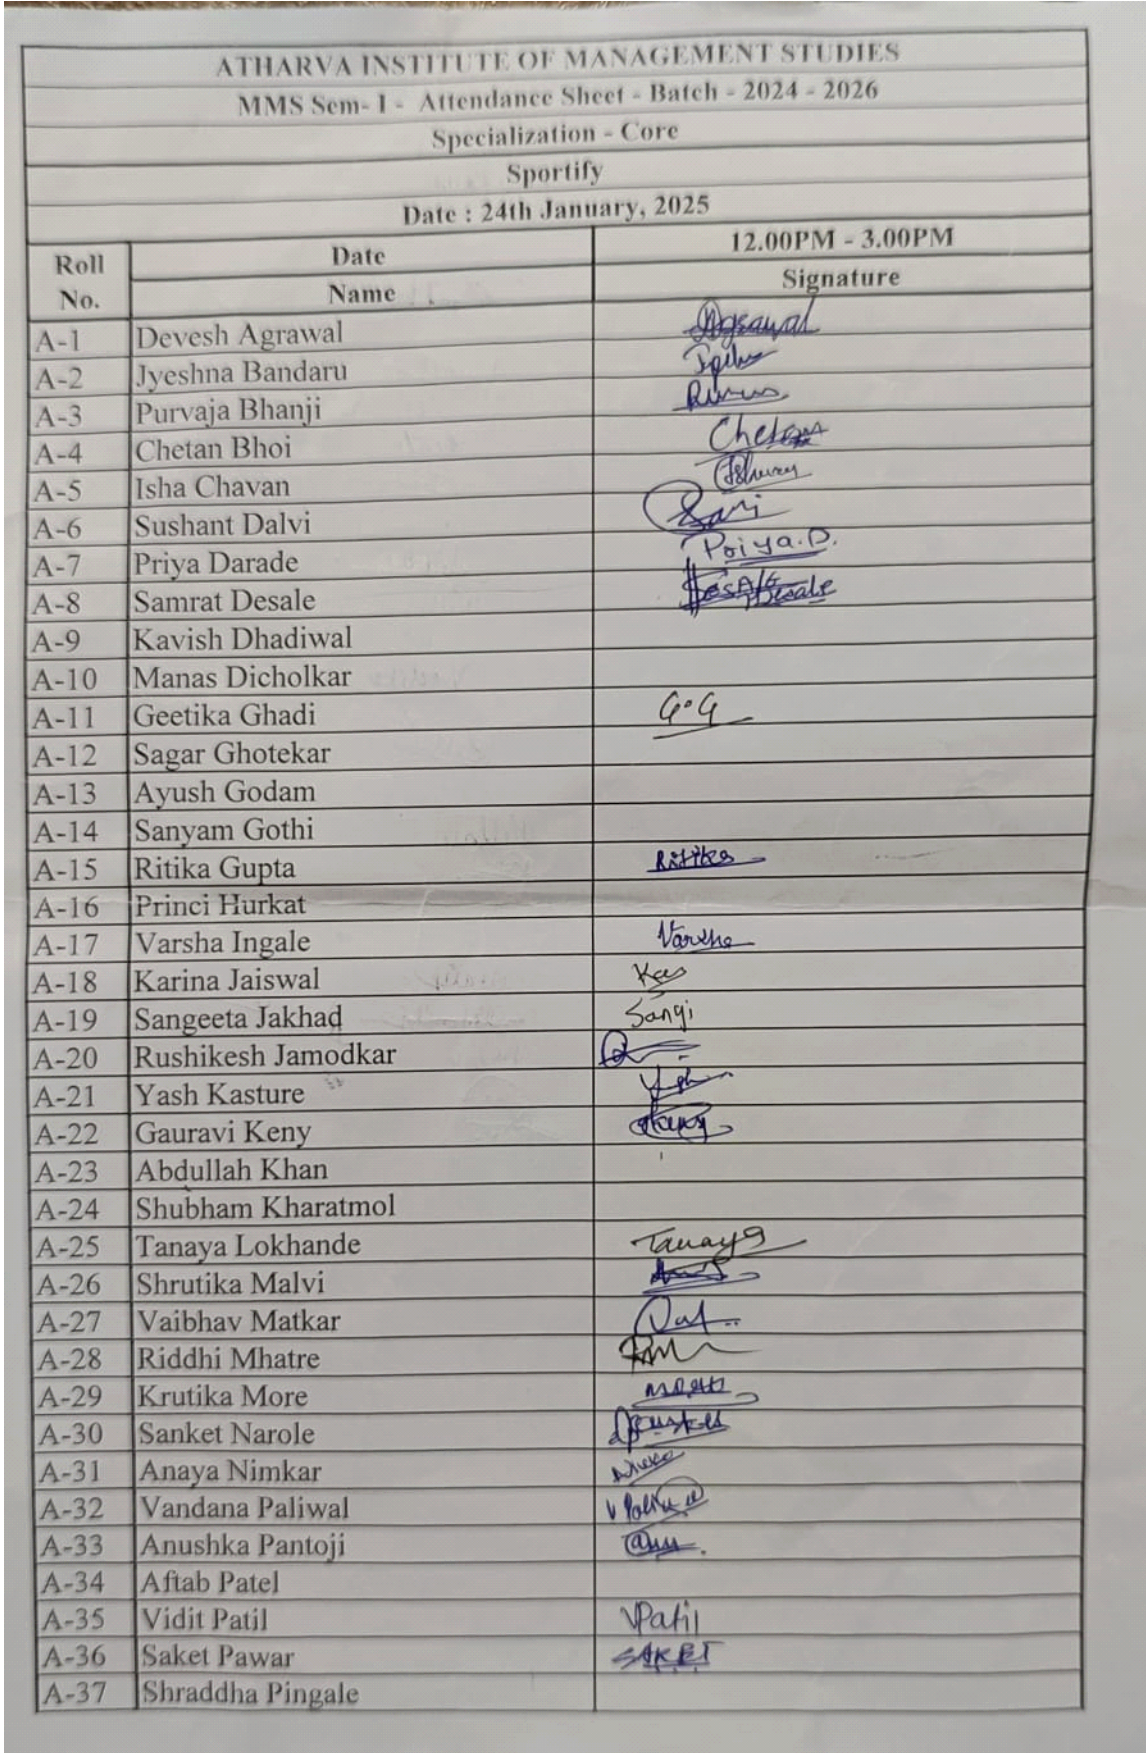 ATHARVA INSTITUTE OF MANAGEMENT STUDIES
MMS Sem- I - Attendance Sheet - Batch - 2024 - 2026
Specialization - Core
Sportify
Date : 24th January, 2025
Roll No. Date 12.00PM - 3.00PM
Name Signature
A-1 Devesh Agrawal Agrawal
A-2 Jyeshna Bandaru
A-3 Purvaja Bhanji
A-4 Chetan Bhoi Chetan
A-5 Isha Chavan
A-6 Sushant Dalvi
A-7 Priya Darade Priya.D.
A-8 Samrat Desale Desale
A-9 Kavish Dhadiwal
A-10 Manas Dicholkar
A-11 Geetika Ghadi G.G
A-12 Sagar Ghotekar
A-13 Ayush Godam
A-14 Sanyam Gothi
A-15 Ritika Gupta Ritika
A-16 Princi Hurkat
A-17 Varsha Ingale Varsha
A-18 Karina Jaiswal
A-19 Sangeeta Jakhad Sangi
A-20 Rushikesh Jamodkar
A-21 Yash Kasture
A-22 Gauravi Keny
A-23 Abdullah Khan
A-24 Shubham Kharatmol
A-25 Tanaya Lokhande Tanaya
A-26 Shrutika Malvi
A-27 Vaibhav Matkar
A-28 Riddhi Mhatre
A-29 Krutika More
A-30 Sanket Narole
A-31 Anaya Nimkar
A-32 Vandana Paliwal
A-33 Anushka Pantoji
A-34 Aftab Patel
A-35 Vidit Patil VPatil
A-36 Saket Pawar SAKET
A-37 Shraddha Pingale